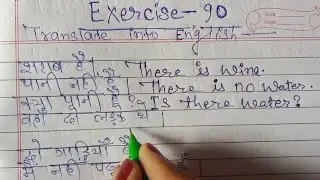 Exercise-90
Translate into English
शराब है। There is wine.
पानी नहीं है। There is no water.
क्या पानी है? Is there water?
वहाँ दो लड़के थे।
दो गाड़ियाँ है
मैं नहीं